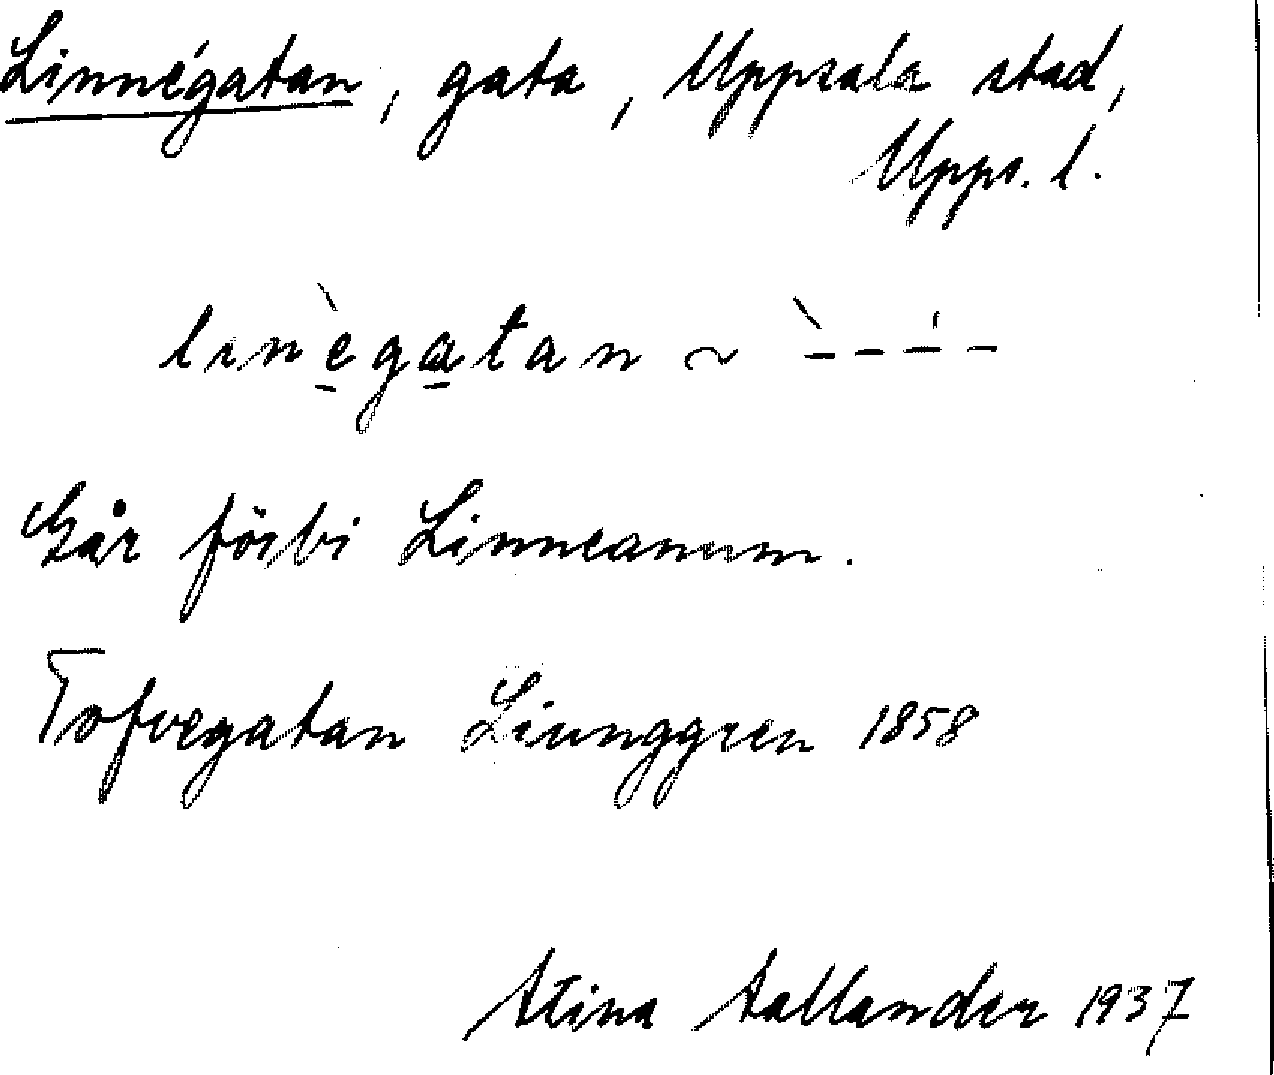 Linnégatan, gata, Uppsala stad,
Upps. l.
linègatan ~ `- - -́ -
Går förbi Linneanum.
Tofvegatan Liunggren 1858
Stina Sallander 1937